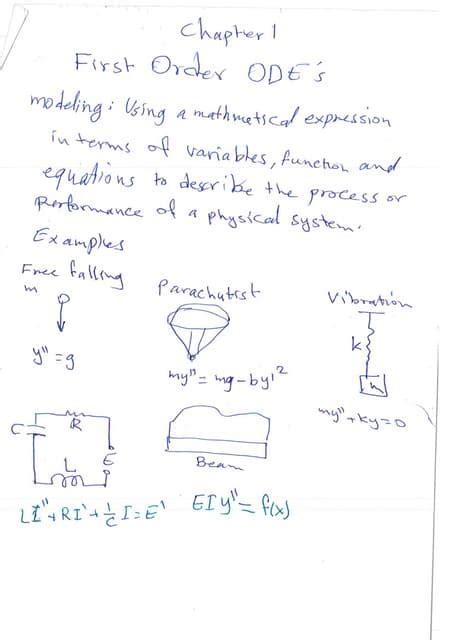 Chapter 1
First Order ODE's
modeling: Using a mathmetical expression
in terms of variables, function and
equations to describe the process or
Performance of a physical system.
Examples
Free falling
m
y" = g
Parachutist
my" = mg - by'²
Vibration
k
m
my" + ky = 0
C
R
L
E
LI" + RI' + 1/C I = E'
Beam
EIy" = f(x)